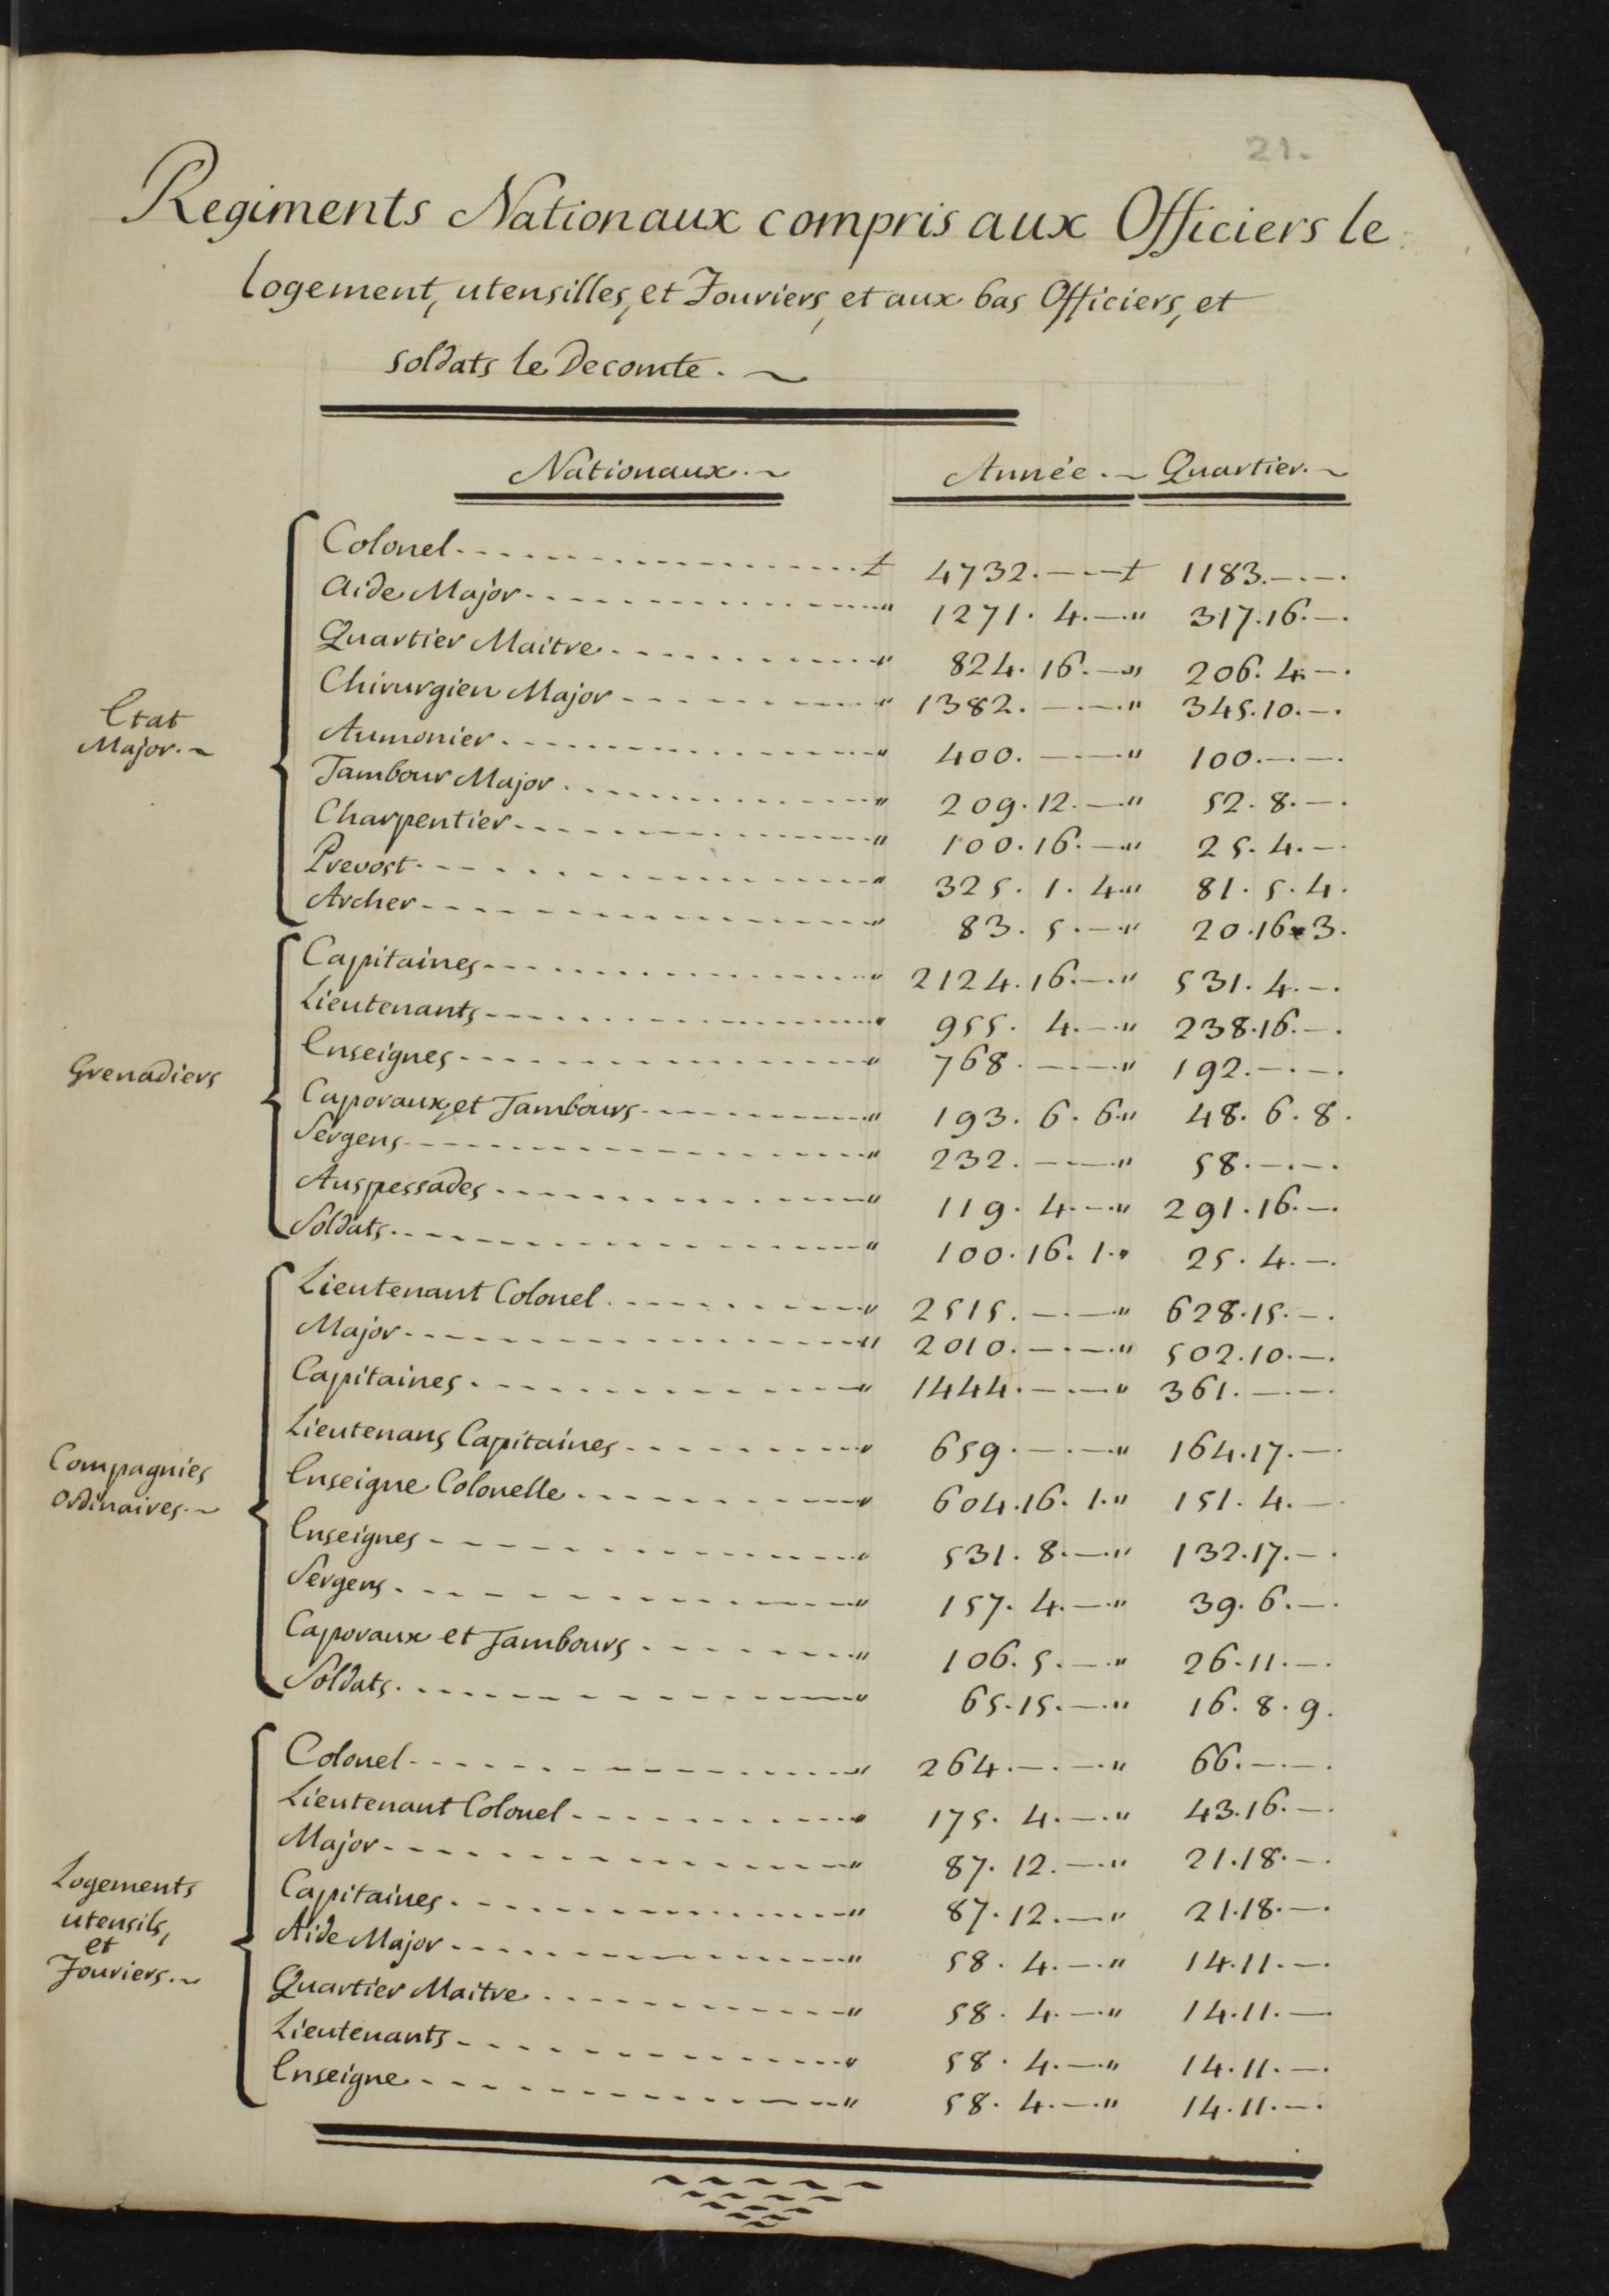 21.
Regiments Nationaux compris aux Officiers le
logement, utensilles, et Fouriers, et aux bas Officiers, et
soldats le Decomte. ~
Nationaux. ~ Année. ~ Quartier. ~
Etat
Major. ~
Colonel - - - ₶ 4732. — . — ₶ 1183. — . — .
Aide Major - - - " 1271. 4. — . " 317. 16. — .
Quartier Maitre - - - " 824. 16. — . " 206. 4. — .
Chirurgien Major - - - " 1382. — . — . " 345. 10. — .
Aumonier - - - " 400. — . — . " 100. — . — .
Tambour Major - - - " 209. 12. — . " 52. 8. — .
Charpentier - - - " 100. 16. — . " 25. 4. — .
Prevost - - - " 325. 1. 4. " 81. 5. 4.
Archer - - - " 83. 5. — . " 20. 16. 3.
Grenadiers
Capitaines - - - " 2124. 16. — . " 531. 4. — .
Lieutenants - - - " 955. 4. — . " 238. 16. — .
Enseignes - - - " 768. — . — . " 192. — . — .
Caporaux, et Tambours - - - " 193. 6. 6. " 48. 6. 8.
Sergens - - - " 232. — . — . " 58. — . — .
Anspessades - - - " 119. 4. — . " 291. 16. — .
Soldats - - - " 100. 16. 1. " 25. 4. — .
Compagnies
Ordinaires. ~
Lieutenant Colonel - - - " 2515. — . — . " 628. 15. — .
Major - - - " 2010. — . — . " 502. 10. — .
Capitaines - - - " 1444. — . — . " 361. — . — .
Lieutenans Capitaines - - - " 659. — . — . " 164. 17. — .
Enseigne Colonelle - - - " 604. 16. 1. " 151. 4. — .
Enseignes - - - " 531. 8. — . " 132. 17. — .
Sergens - - - " 157. 4. — . " 39. 6. — .
Caporaux et Tambours - - - " 106. 5. — . " 26. 11. — .
Soldats - - - " 65. 15. — . " 16. 8. 9.
Logements
utensils,
et
Fouriers. ~
Colonel - - - " 264. — . — . " 66. — . — .
Lieutenant Colonel - - - " 175. 4. — . " 43. 16. — .
Major - - - " 87. 12. — . " 21. 18. — .
Capitaines - - - " 87. 12. — . " 21. 18. — .
Aide Major - - - " 58. 4. — . " 14. 11. — .
Quartier Maitre - - - " 58. 4. — . " 14. 11. — .
Lieutenants - - - " 58. 4. — . " 14. 11. — .
Enseigne - - - " 58. 4. — . " 14. 11. — .